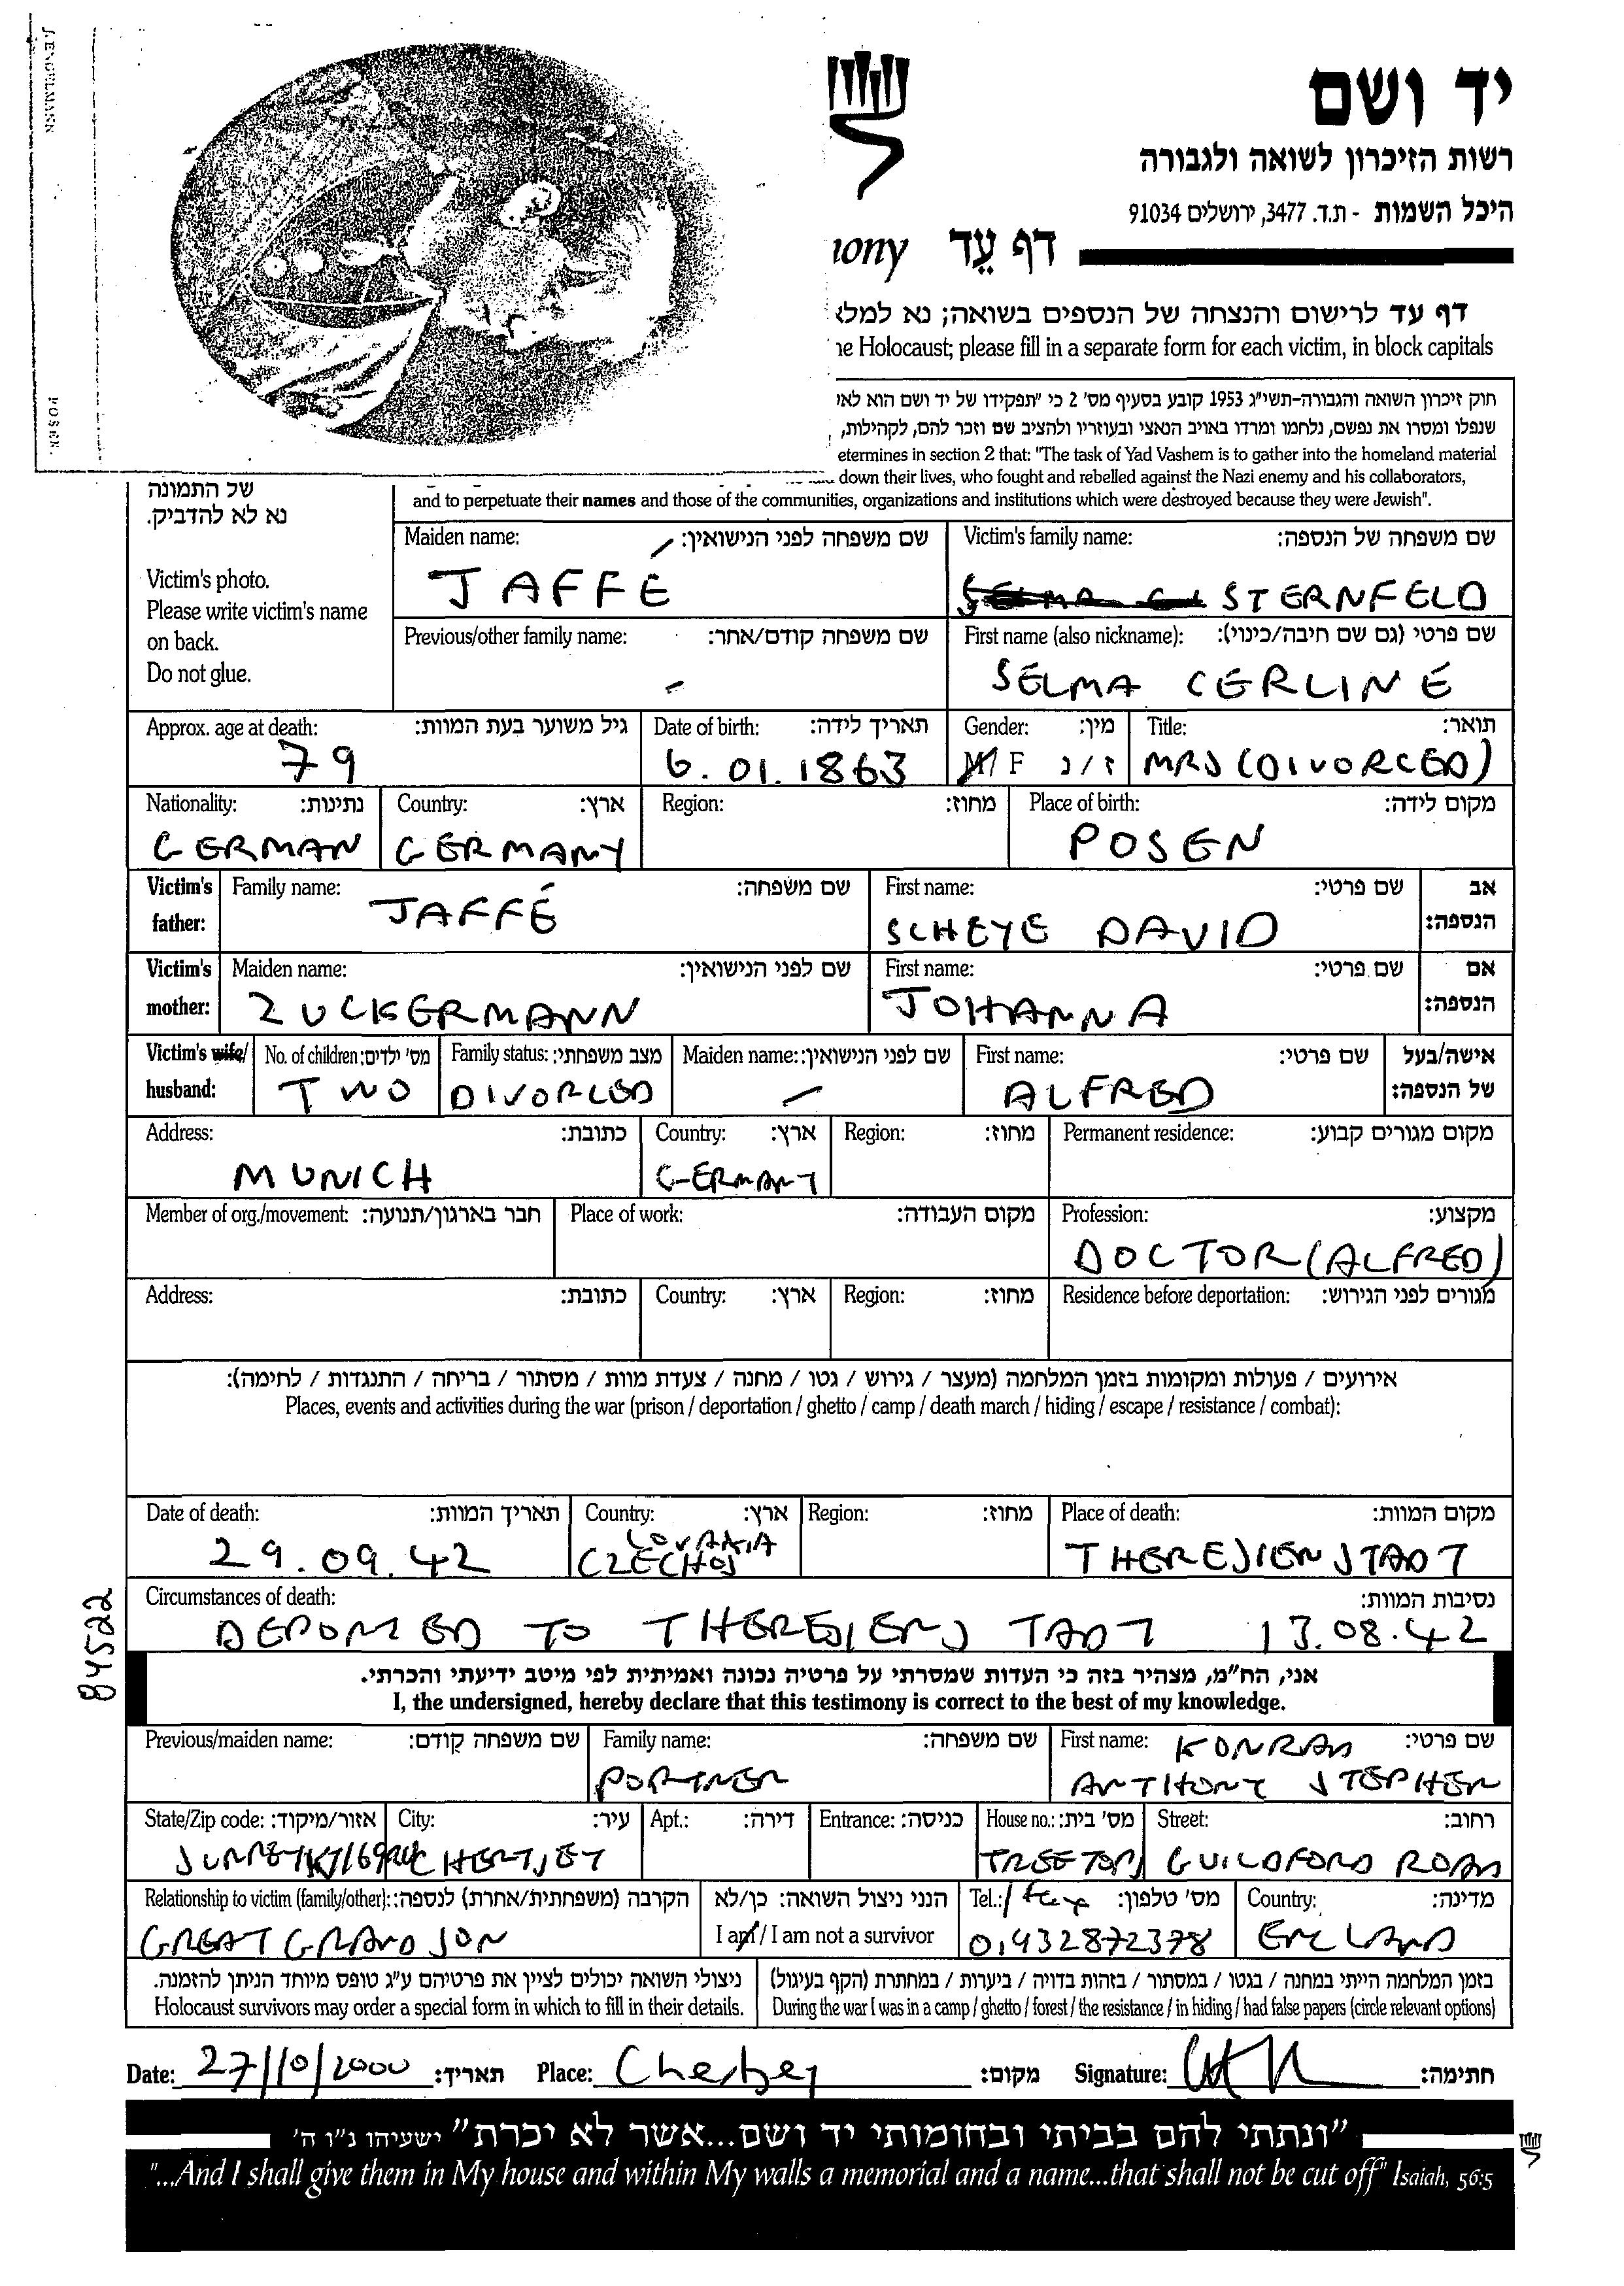 J. ENGELMANN
POSEN.
יד ושם
רשות הזיכרון לשואה ולגבורה
היכל השמות - ת.ד. 3477, ירושלים 91034
דף עֵד
דף עד לרישום והנצחה של הנספים בשואה; נא למלא
Holocaust; please fill in a separate form for each victim, in block capitals
חוק זיכרון השואה והגבורה-תשי"ג 1953 קובע בסעיף מס' 2 כי "תפקידו של יד ושם הוא לאי
שנפלו ומסרו את נפשם, נלחמו ומרדו באויב הנאצי ובעוזריו ולהציב שם וזכר להם, לקהילות,
etermines in section 2 that: "The task of Yad Vashem is to gather into the homeland material
down their lives, who fought and rebelled against the Nazi enemy and his collaborators,
and to perpetuate their names and those of the communities, organizations and institutions which were destroyed because they were Jewish".
של התמונה
נא לא להדביק.
Victim's photo.
Please write victim's name
on back.
Do not glue.
Maiden name: שם משפחה לפני הנישואין: Victim's family name: שם משפחה של הנספה:
JAFFÉ STERNFELD
Previous/other family name: שם משפחה קודם/אחר: First name (also nickname): שם פרטי (גם שם חיבה/כינוי):
- SELMA CERLINE
Approx. age at death: גיל משוער בעת המוות: Date of birth: תאריך לידה: Gender: מין: Title: תואר:
79 6.01.1863 M/ F ז / נ MRS (DIVORCED)
Nationality: נתינות: Country: ארץ: Region: מחוז: Place of birth: מקום לידה:
GERMAN GERMANY POSEN
Victim's father: Family name: שם משפחה: First name: שם פרטי: אב הנספה:
JAFFÉ SCHEYE DAVID
Victim's mother: Maiden name: שם לפני הנישואין: First name: שם פרטי: אם הנספה:
ZUCKERMANN JOHANNA
Victim's wife/ husband: No. of children: מס' ילדים: Family status: מצב משפחתי: Maiden name: שם לפני הנישואין: First name: שם פרטי: אישה/בעל של הנספה:
TWO DIVORCED - ALFRED
Address: כתובת: Country: ארץ: Region: מחוז: Permanent residence: מקום מגורים קבוע:
MUNICH GERMANY
Member of org./movement: חבר בארגון/תנועה: Place of work: מקום העבודה: Profession: מקצוע:
DOCTOR (ALFRED)
Address: כתובת: Country: ארץ: Region: מחוז: Residence before deportation: מגורים לפני הגירוש:
אירועים / פעולות ומקומות בזמן המלחמה (מעצר / גירוש / גטו / מחנה / צעדת מוות / מסתור / בריחה / התנגדות / לחימה):
Places, events and activities during the war (prison / deportation / ghetto / camp / death march / hiding / escape / resistance / combat):
Date of death: תאריך המוות: Country: ארץ: Region: מחוז: Place of death: מקום המוות:
29.09.42 CZECHOSLOVAKIA THERESIENSTADT
Circumstances of death: נסיבות המוות:
DEPORTED TO THERESIENSTADT 13.08.42
84522
אני, הח"מ, מצהיר בזה כי העדות שמסרתי על פרטיה נכונה ואמיתית לפי מיטב ידיעתי והכרתי.
I, the undersigned, hereby declare that this testimony is correct to the best of my knowledge.
Previous/maiden name: שם משפחה קודם: Family name: שם משפחה: First name: שם פרטי:
PORTNER KONRAD
ANTHONY STEPHEN
State/Zip code: אזור/מיקוד: City: עיר: Apt.: דירה: Entrance: כניסה: House no.: מס' בית: Street: רחוב:
SURREY CHERTSEY TREETOPS GUILDFORD ROAD
Relationship to victim (family/other): הקרבה (משפחתית/אחרת) לנספה: הנני ניצול השואה: כן/לא Tel.: / fax מס' טלפון: Country: מדינה:
GREAT GRANDSON I am / I am not a survivor 01932872378 ENGLAND
ניצולי השואה יכולים לציין את פרטיהם ע"ג טופס מיוחד הניתן להזמנה. בזמן המלחמה הייתי במחנה / בגטו / במסתור / בזהות בדויה / ביערות / במחתרת (הקף בעיגול)
Holocaust survivors may order a special form in which to fill in their details. During the war I was in a camp / ghetto / forest / the resistance / in hiding / had false papers (circle relevant options)
Date: 27/10/2000 תאריך: Place: Chertsey מקום: Signature: חתימה:
"ונתתי להם בביתי ובחומותי יד ושם...אשר לא יכרת" ישעיהו נ"ו ה'
"...And I shall give them in My house and within My walls a memorial and a name...that shall not be cut off" Isaiah, 56:5